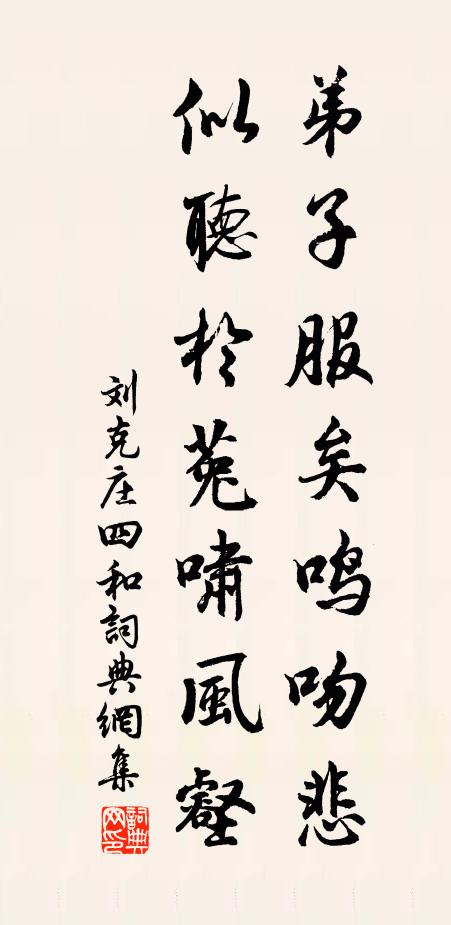 弟子服矣鸣吻悲
似聽於菟嘯風壑
刘克庄四和詞典網集
詞典网印